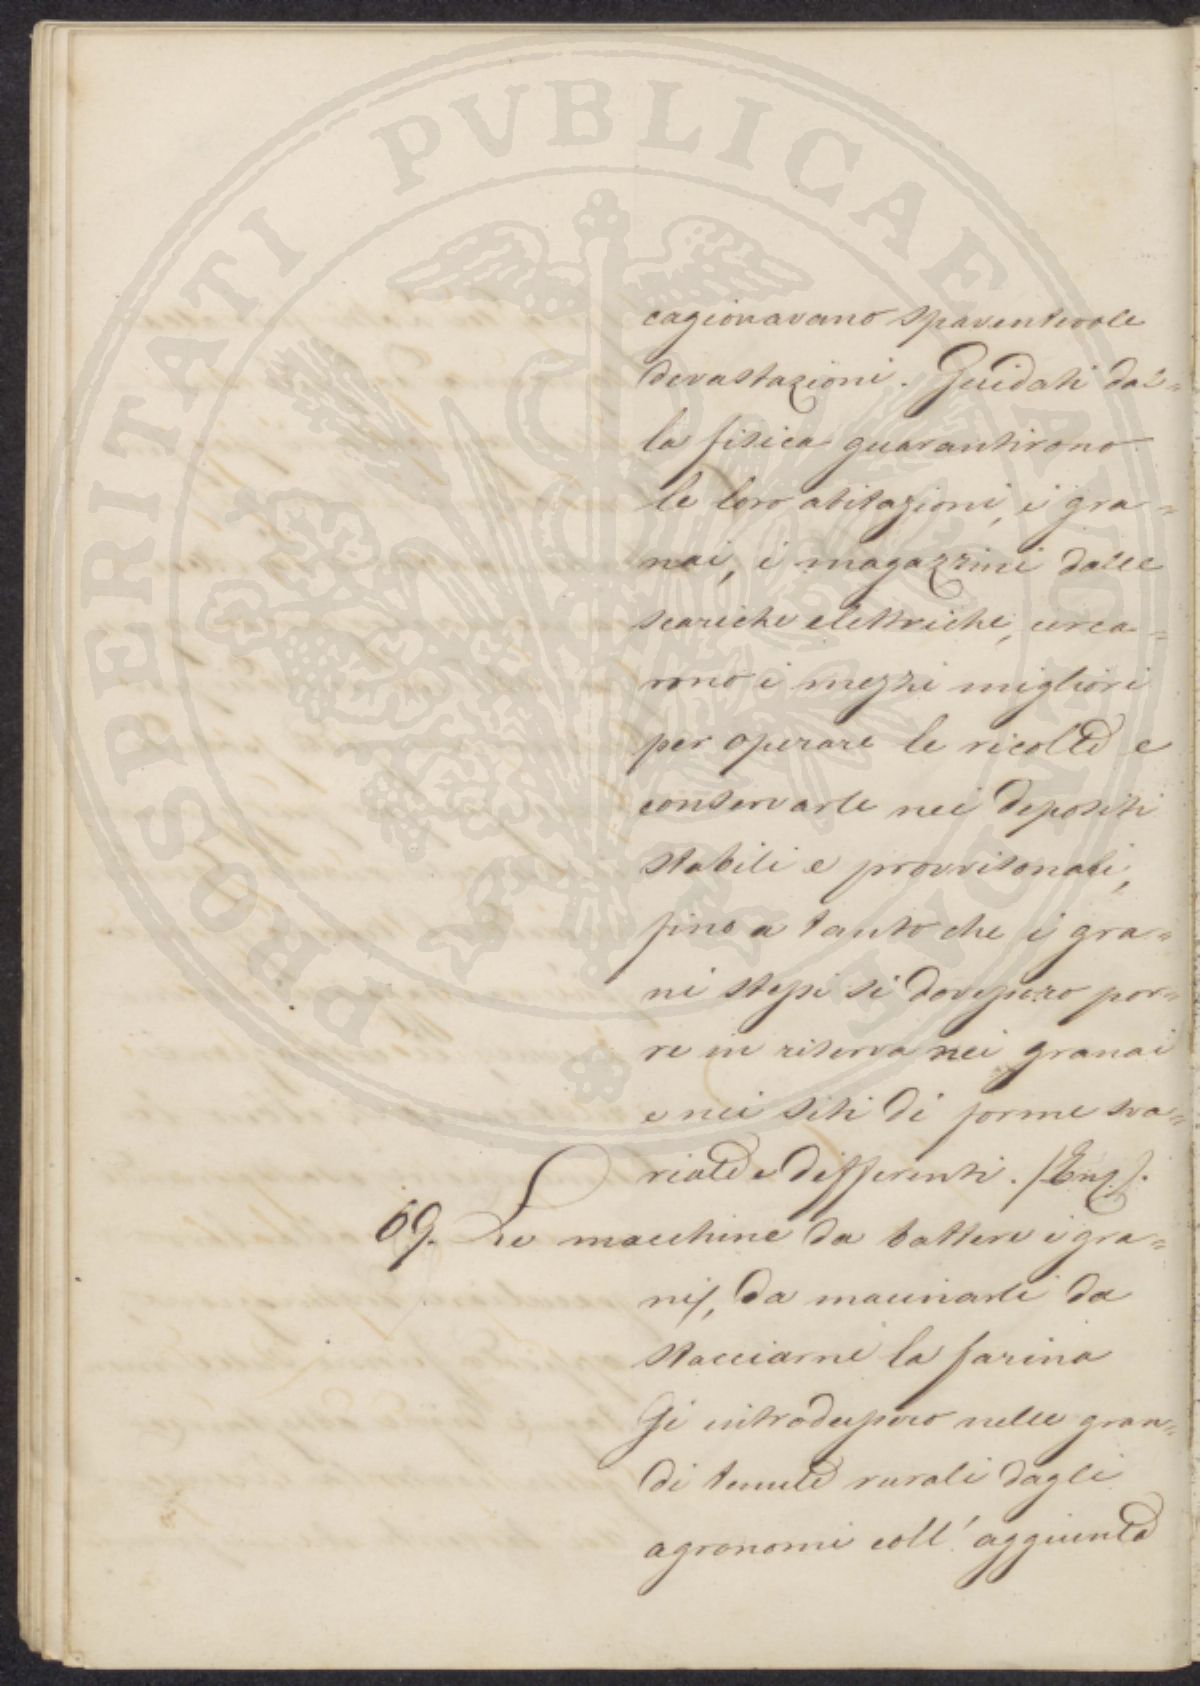 PROSPERITATI PVBLICAE AVGENDAE
cagionavano spaventevole
devastazioni. Guidati dal=
la fisica guarantirono
le loro abitazioni, i gra=
nai, i magazzini dalle
scariche elettriche, cerca=
rono i mezzi migliori
per operare le ricolte e
conservarle nei depositi
stabili e provvisonali,
fino a tanto che i gra=
ni stessi si dovessero por=
re in riserva nei granai
e nei siti di forme sva=
riate e differenti.
69. Le macchine da battere i gra=
ni, da macinarli da
stacciarne la farina
Si introdussero nelle gran=
di tenute rurali dagli
agronomi coll' aggiunte